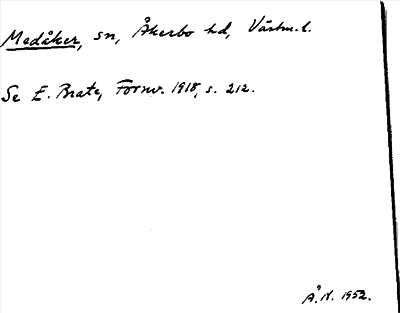 Medåker, sn, Åkerbo hd, Västm. l.
Se E. Brate, Fornv. 1918, s. 212.
Å. N. 1952.